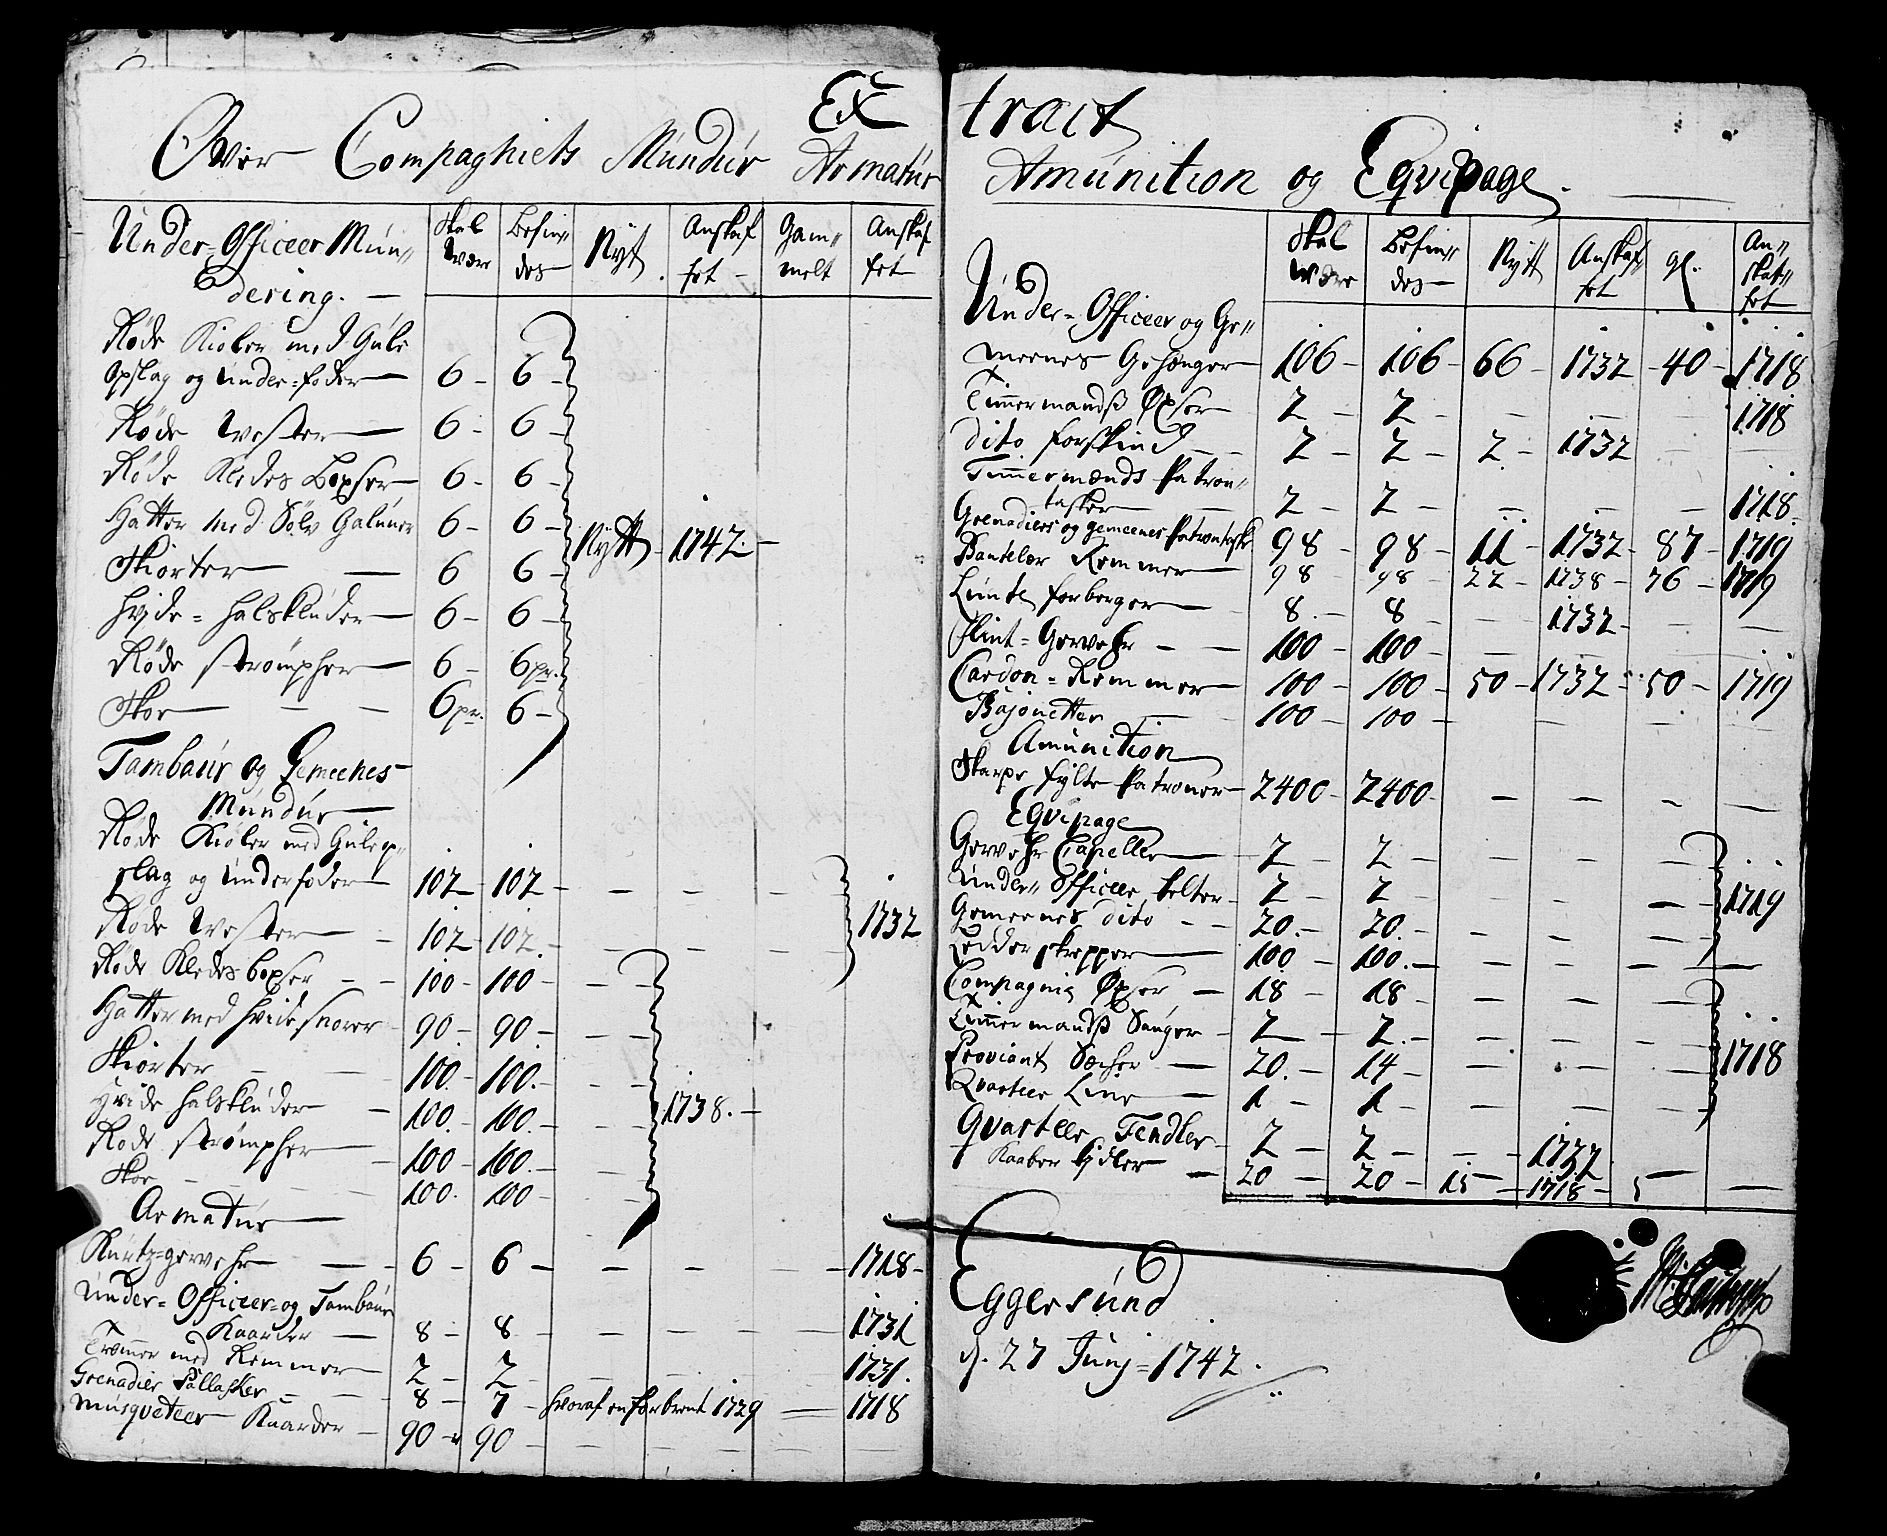 Extract
Over Compagniets Mundur Armatur
Amunition og Equipage.
Under-Officeer Mun- | Skal være | Befin- des | Nyt | Anskaf fet | Gam- melt | Anskaf fet
dering.
Røde Kioler med Gule
Opslag og Under-foder 6 - 6 -
Røde Vester 6 - 6 -
Røde Kledes Boxser 6 - 6 -
Hatter med Sølv Galuner 6 - 6 - Nytt - 1742. -
Skiorter 6 6 -
Hvide-halskluder 6 - 6 -
Røde strømpher 6 - 6 pr.
Skoe 6 pr. 6 -
Tambaur og Gemeenes
Mundur
Røde Kioler med Gule op-
slag og Underfoder 102 - 102 - - - -
Røde Vester 102 - 102. - - - - 1732
Røde Kledes boxser - - 100 - 100 - - -
Hatter med hvide snorer 90 - 90 - - -
Skiorter - - 100 - 100. - - -
Hvide halskluder - 100. - 100. - - - 1738. -
Røde strømpher - 100 - 100. - - -
Skoe - - - 100. 100 - - -
Armatur
Kurtz-gevehr 6 - 6 - - - - 1718 -
Under-Officeer-og Tambaur
Kaarder 8 - 8 - - - - 1731
Trommer med Remmer 2 - 2 - - - - 1731.
Grenadier Pallasker - - 8 - 7 - hvoraf en forbrent 1729 - 1718
Musqveteer Kaarder - 90 - 90 - - - -
Skal være | Befin- des | Nytt | Anskaf- fet | gl. | An- skaf- fet
Under-Officeer og Ge-
meenes Gehenger 106 - 106 - 66 - 1732 - 40 - 1718
Timmermandß Øxser 2 - 2 - - - - 1718
Dito forskind - - 2 - 2 - 2 - 1732 - -
Timmermænds Patron-
tasker 2 - 2 - - - - 1718.
Grenadiers og gemeenes Patrontasker 98 - 98 - 11 - 1732 - 87 - 1719
Bantelær Remmer 98 - 98 - 22 - 1738 - 76 - 1719
Lunte forberger 8. - 8 - - 1732 - - -
Flint-Gevehr - - 100 - 100 - - - - -
Cardon-Remmer 100 - 100 - 50 - 1732 - 50 - 1719
Bajonetter 100 - 100 - - - -
Amunition
Skarpe fylte Patroner 2400 - 2400 - - - - -
Equipage
Gevehr Capeller 2 - 2 - - - -
Under-Officeer telter - 2 - 2 - - - - 1719
Gemeenes dito - - 20. - 20. - - - -
Ledder skrepper 100 - 100. - - - - -
Compagnie Øxser - 18 - 18 - - - -
Timmermandß Sauger - 2 - 2. - - - -
Proviant Sæcher - 20. - 14 - - - - 1718
Qvarteer Line - 1 - 1 - - - -
Qvarteer Fendler - 2 - 2 - - 1732
Kaaber kidler - 20 - 20 - 15 - 1718 - 5 - -
Eggersund
d. 27 Junj - 1742.